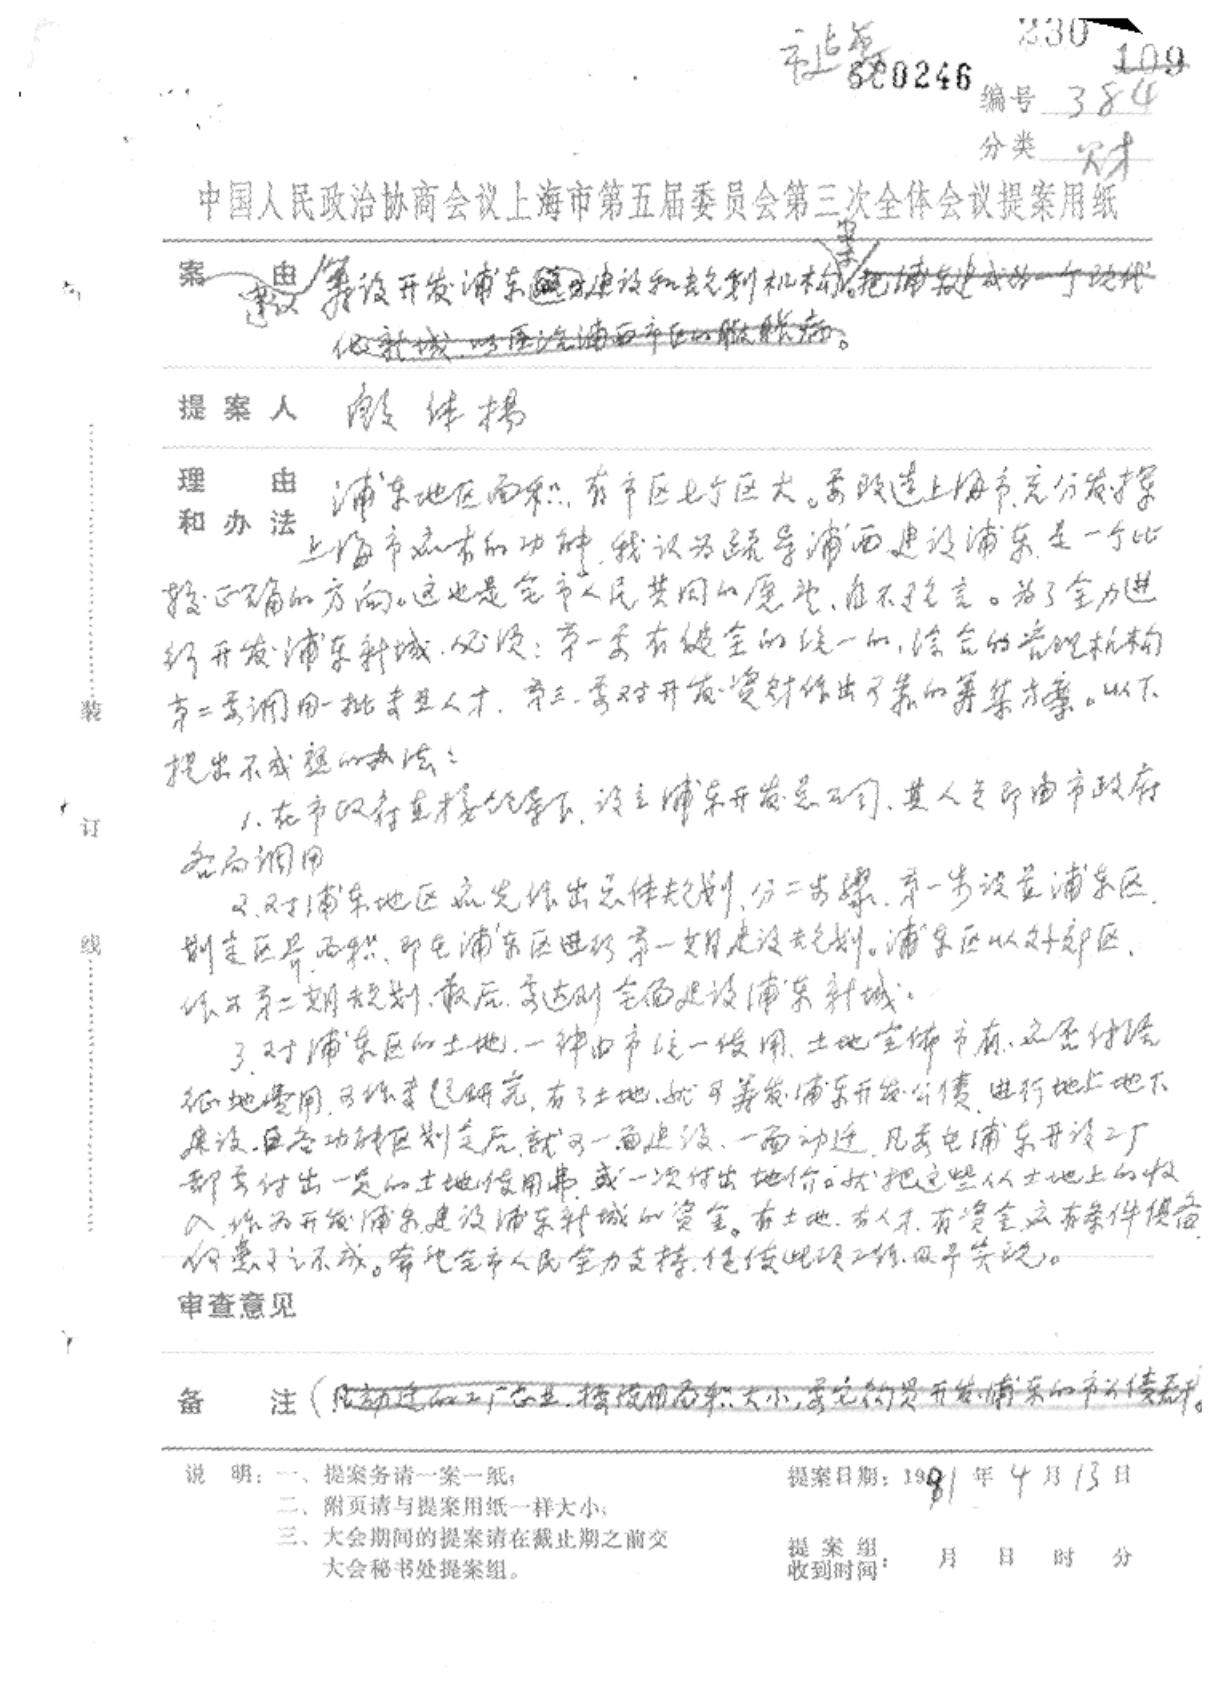 230
109
580246
编号 384
分类 财
中国人民政治协商会议上海市第五届委员会第三次全体会议提案用纸
案由 建议筹设开发浦东建设和规划机构案。把浦东建成为一个现代
化新城，以医治浦西市区的膨胀病。
提案人 顾体扬
理由和办法
浦东地区面积，有市区七个区大。要改造上海市，充分发挥
上海市应有的功能，我认为疏导浦西建设浦东，是一个比
较正确的方向。这也是全市人民共同的愿望，自不待言。为了全力进
行开发浦东新城，必须：第一要有健全的统一的，综合的管理机构
第二要调用一批专业人才，第三，要对开发资财作出可靠的筹集方案。以下
提出不成熟的办法：
1. 在市政府直接领导下，设立浦东开发总公司，其人员即由市政府
各局调用
2. 对浦东地区应先作出总体规划，分二步骤，第一步设置浦东区，
划定区界，面积，即在浦东区进行第一期建设规划。浦东区以外郊区，
作为第二期规划，最后，要达到全面建设浦东新城。
3. 对浦东区的土地，一律由市统一使用，土地全归市有，应否付给
征地费用，可作专题研究，有了土地，就可筹发浦东开发公债，进行地上地下
建设，且各功能区划定后，就可一面建设、一面动迁，凡要在浦东开设工厂
都要付出一定的土地使用费，或一次付出地价。就把这些从土地上的收
入，作为开发浦东，建设浦东新城的资金。有土地，有人才，有资金，应有条件俱备，
何患事之不成。希望全市人民全力支持，促使此项工作及早实现。
审查意见
备注（凡动迁的工厂企业，按使用面积大小，要定购买开发浦东的市公债若干。
说明：一、提案务请一案一纸；
二、附页请与提案用纸一样大小；
三、大会期间的提案请在截止期之前交
大会秘书处提案组。
提案日期：1981年4月13日
提案组
收到时间： 月 日 时 分
装
订
线